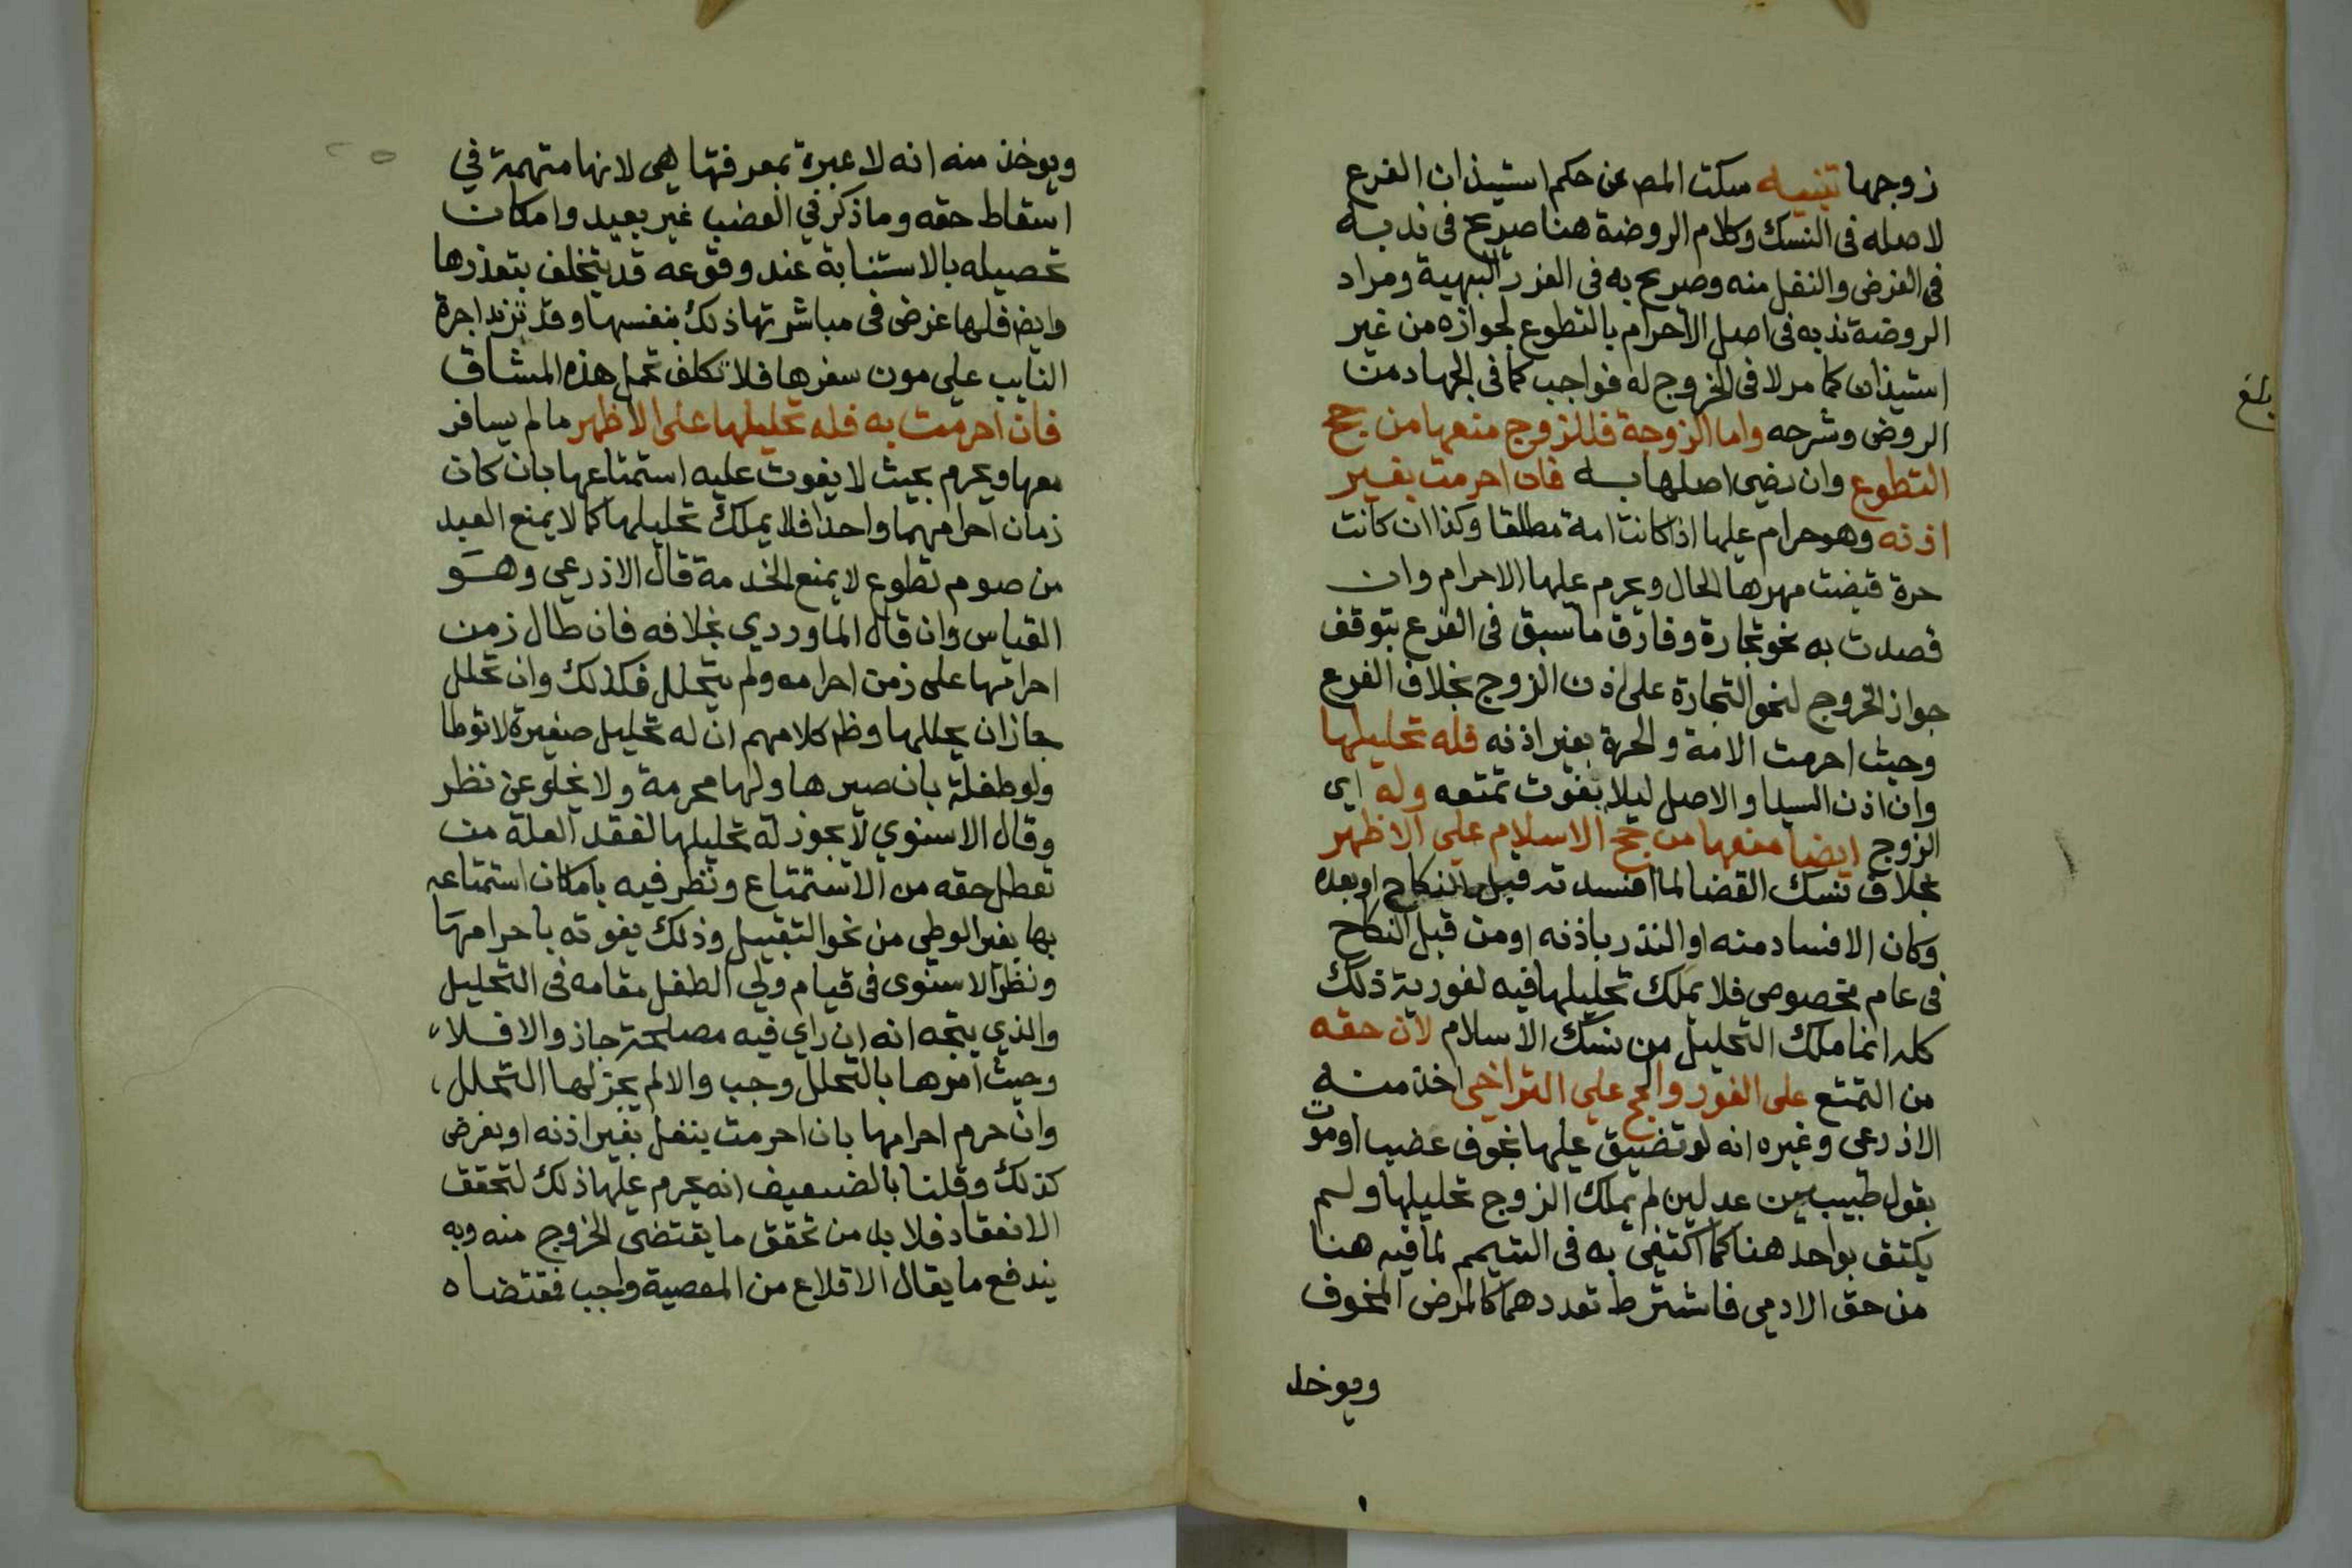 زوجها تنبيه سكت المص عن حكم استيذان الفرع
لاصله في النسك وكلام الروضة هنا صريح في ندبه
في الفرض والنفل منه وصرح به في الغرر البهية ومراد
الروضة ندبه في اصل الاحرام بالتطوع لجوازه من غير
استيذان كما مر لا في الخروج له فواجب كما في الجهاد من
الروض وشرحه واما الزوجة فللزوج منعها من حج
التطوع وان رضي اصلها به فان احرمت بغير
اذنه وهو حرام عليها اذا كانت امة مطلقا وكذا ان كانت
حرة قبضت مهرها الحال ويحرم عليها الاحرام وان
قصدت به نحو تجارة وفارق ما سبق في الفرع بتوقف
جواز الخروج لنحو التجارة على اذن الزوج بخلاف الفرع
وحيث احرمت الامة والحرة بغير اذنه فله تحليلها
وان اذن السيد او الاصل ليلا يفوت تمتعه وله اي
الزوج ايضا منعها من حج الاسلام علي الاظهر
بخلاف نسك القضا لما افسدته قبل النكاح او بعده
وكان الافساد منه او النذر باذنه او من قبل النكاح
في عام مخصوص فلا يملك تحليلها فيه لفورية ذلك
كله انما ملك التحليل من نسك الاسلام لان حقه
من التمتع على الفور والحج علي التراخي اخذ منه
الاذرعي وغيره انه لو تضيق عليها بخوف عضب او موت
بقول طبيبين عدلين لم يملك الزوج تحليلها ولم
يكتف بواحد هنا كما اكتفي به في التيمم لما فيه هنا
من حق الادمي فاشترط تعددهما كالمرض المخوف
ويوخذ
بلغ
ويوخذ منه انه لا عبرة بمعرفتها هي لانها متهمة في
اسقاط حقه وما ذكر في العضب غير بعيد وامكان
تحصيله بالاستنابة عند وقوعه قد يتخلف بتعذرها
وايض فلها غرض في مباشرتها ذلك بنفسها وقد تزيد اجرة
النايب علي مون سفرها فلا تكلف تحمل هذه المشاق
فان احرمت به فله تحليلها على الاظهر ما لم يسافر
معها ويحرم بحيث لا يفوت عليه استمتاعها بان كان
زمان احرامهما واحدا فلا يملك تحليلها كما لا يمنع العبد
من صوم تطوع لا يمنع الخدمة قال الاذرعي وهو
القياس وان قال الماوردي بخلافه فان طال زمن
احرامها على زمن احرامه ولم يتحلل فكذلك وان تحلل
جاز ان يحللها وظ كلامهم ان له تحليل صغيرة لا توطا
ولو طفلة بان صيرها وليها محرمة ولا يخلو عن نظر
وقال الاسنوي لا يجوز له تحليلها لفقد العلة من
تعطل حقه من الاستمتاع ونظر فيه بامكان استمتاعه
بها بغير الوطي من نحو التقبيل وذلك يفوته باحرامها
ونظر الاسنوى في قيام ولي الطفل مقامه في التحليل
والذي يتجه انه ان راي فيه مصلحة جاز والا فلا
وحيث امرها بالتحلل وجب والا لم يجز لها التحلل
وان حرم احرامها بان احرمت بنفل بغير اذنه او بفرض
كذلك وقلنا بالضعيف انه يحرم عليها ذلك لتحقق
الانعقاد فلا بد من تحقق ما يقتضى الخروج منه وبه
يندفع ما يقال الاقلاع من المعصية واجب فقتضاه